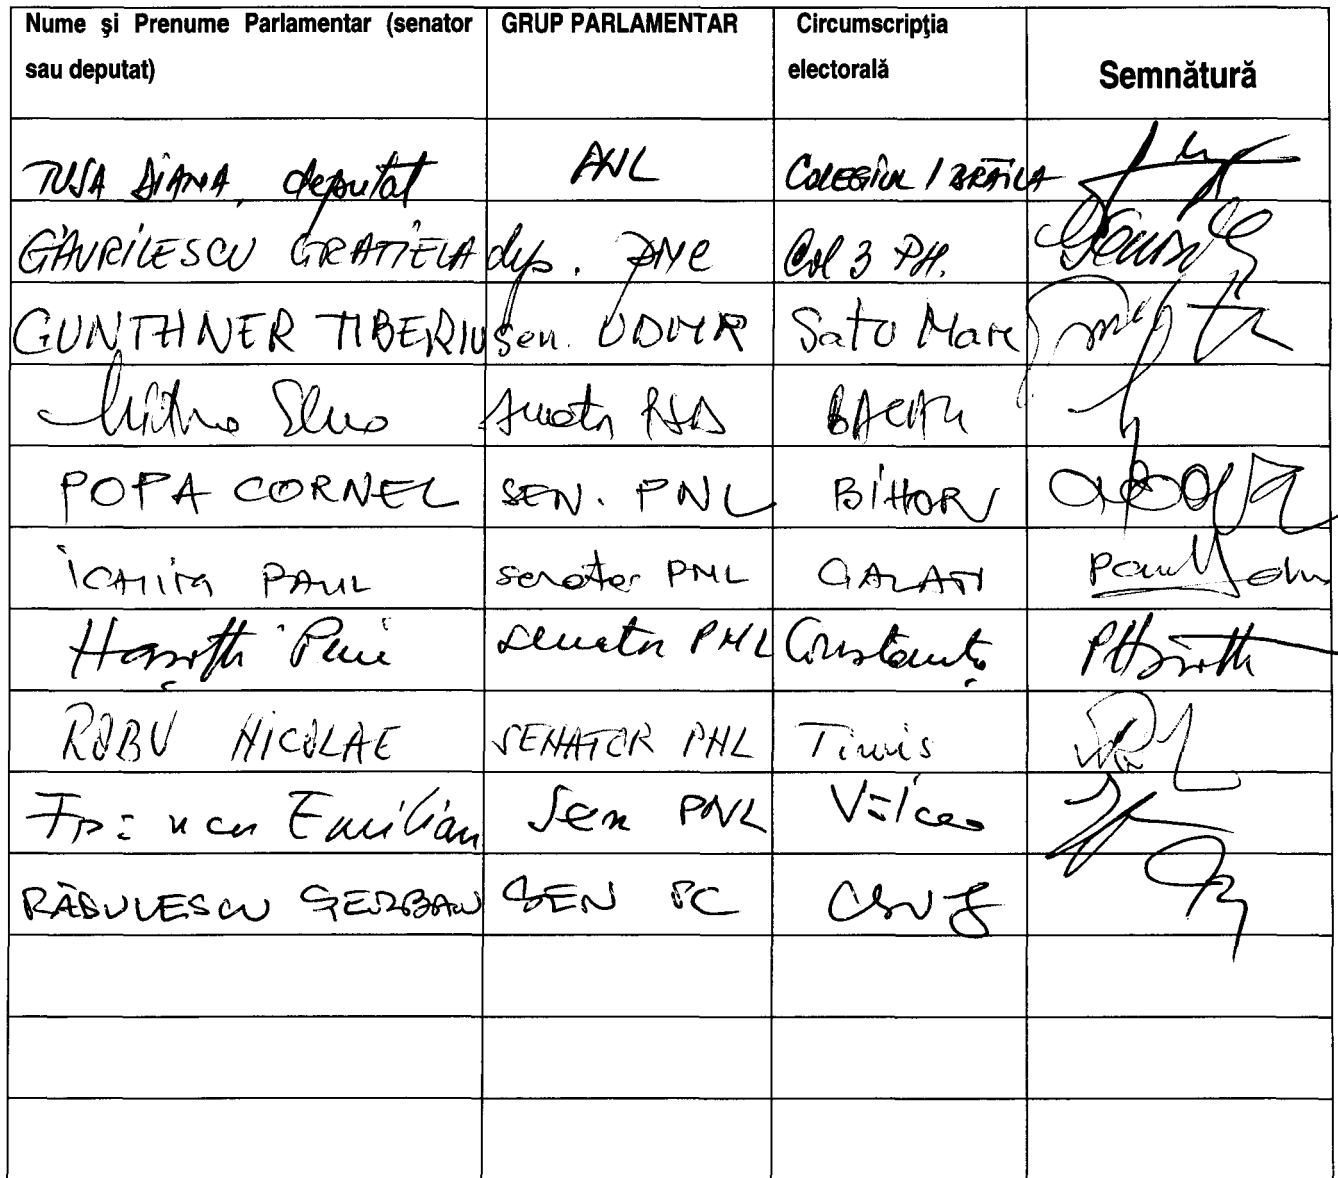 Nume şi Prenume Parlamentar (senator sau deputat) GRUP PARLAMENTAR Circumscripţia electorală Semnătură
TUSA DIANA, deputat PNL COLEGIUL 1 BRĂILA
GAVRILESCU GRATIELA dep. PNL Col 3 PH.
GUNTHNER TIBERIU sen. UDMR Satu Mare
senator PSD BACAU
POPA CORNEL SEN. PNL BIHOR
ICHIM PAUL senator PNL GALATI
Hașotti Puiu senator PNL Constanța
ROBU NICOLAE SENATOR PNL Timis
Frâncu Emilian Sen PNL Vâlcea
RĂDULESCU ȘERBAN SEN PC